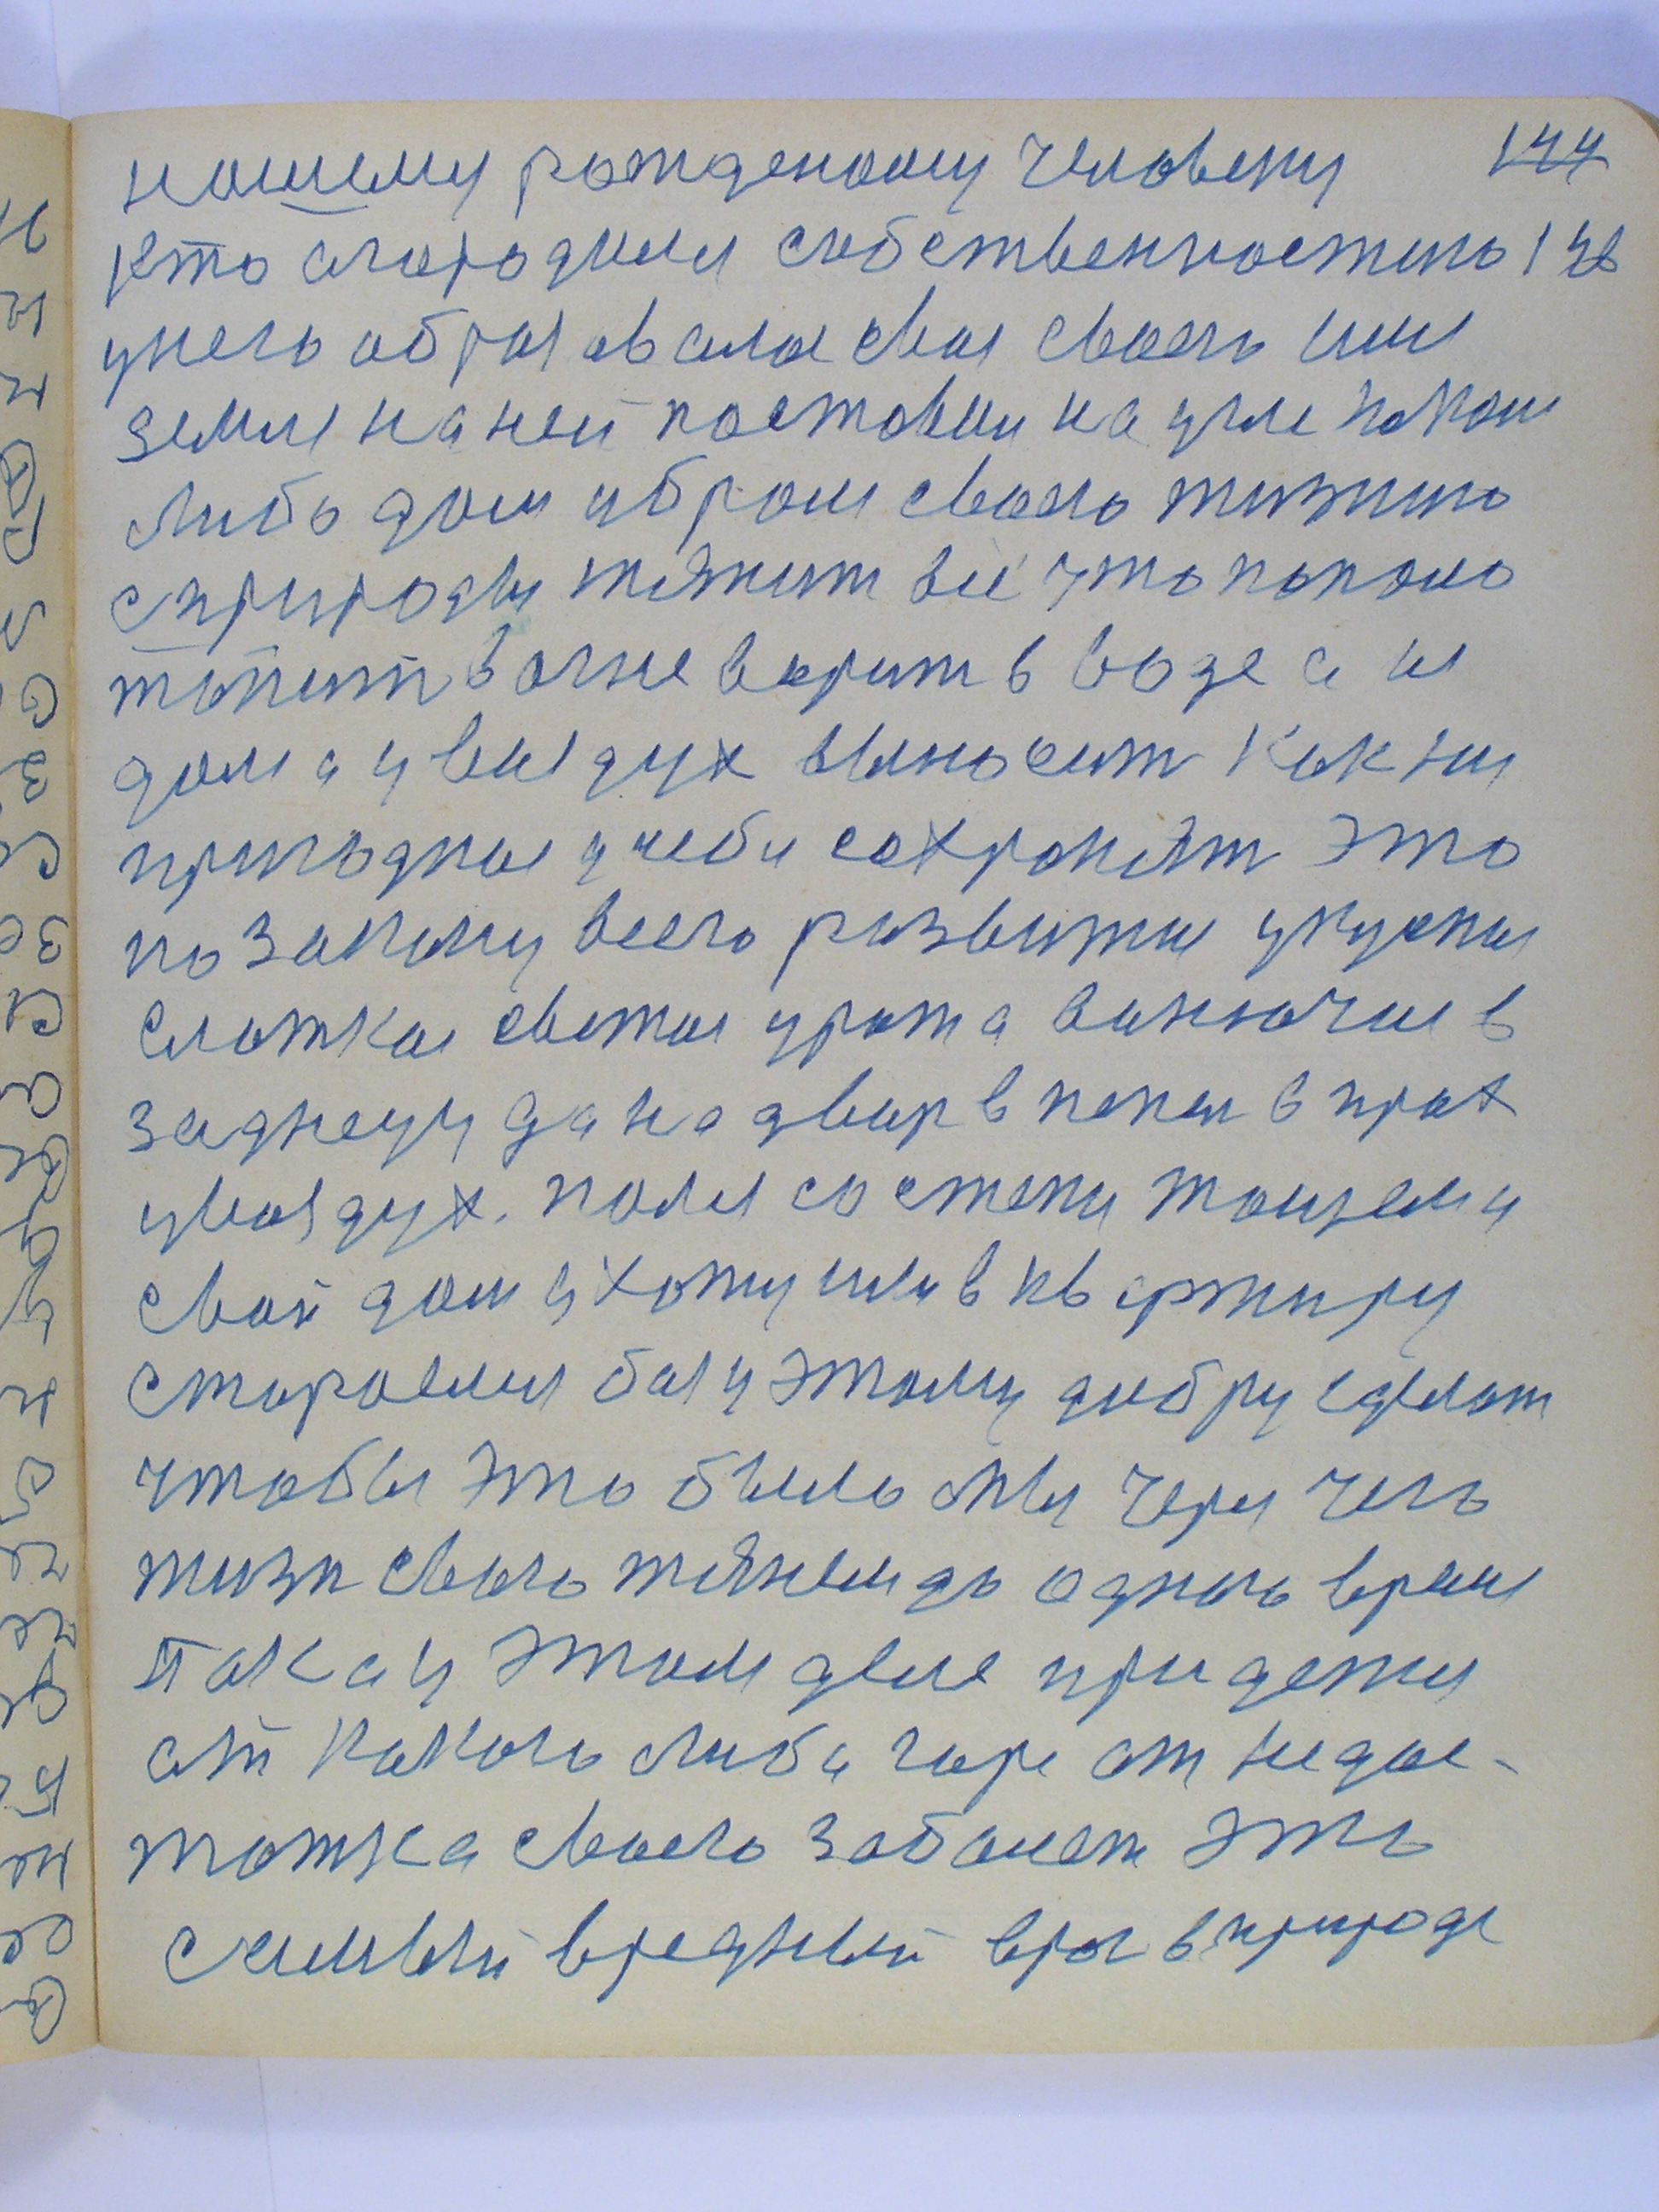 144
нашему рожденому человеку
кто огородился собственностию 138
унего образавалась своя своего имя
земля на ней поставил на угле какой
либо дом и образ своего жизнию
с природы тяжит все что попало
топит в огне варит в воде а из
дома у воздух выносит как ни
пригодное у себя сохраняят это
по закону всего развитие укусная
слоткая святая у рот а ванючая в
заднецу да на двор в пепел в прах
у воздух. поля со степи тощем и
свой дом у хату или в квартиру
стараемся богу этому добру сделат
чтобы это было мы через чего
жизн своего тянем до одного время
Так а у этом деле придется
от какого либа горе от недос-
татка своего заболет это
самый вредный враг в природе